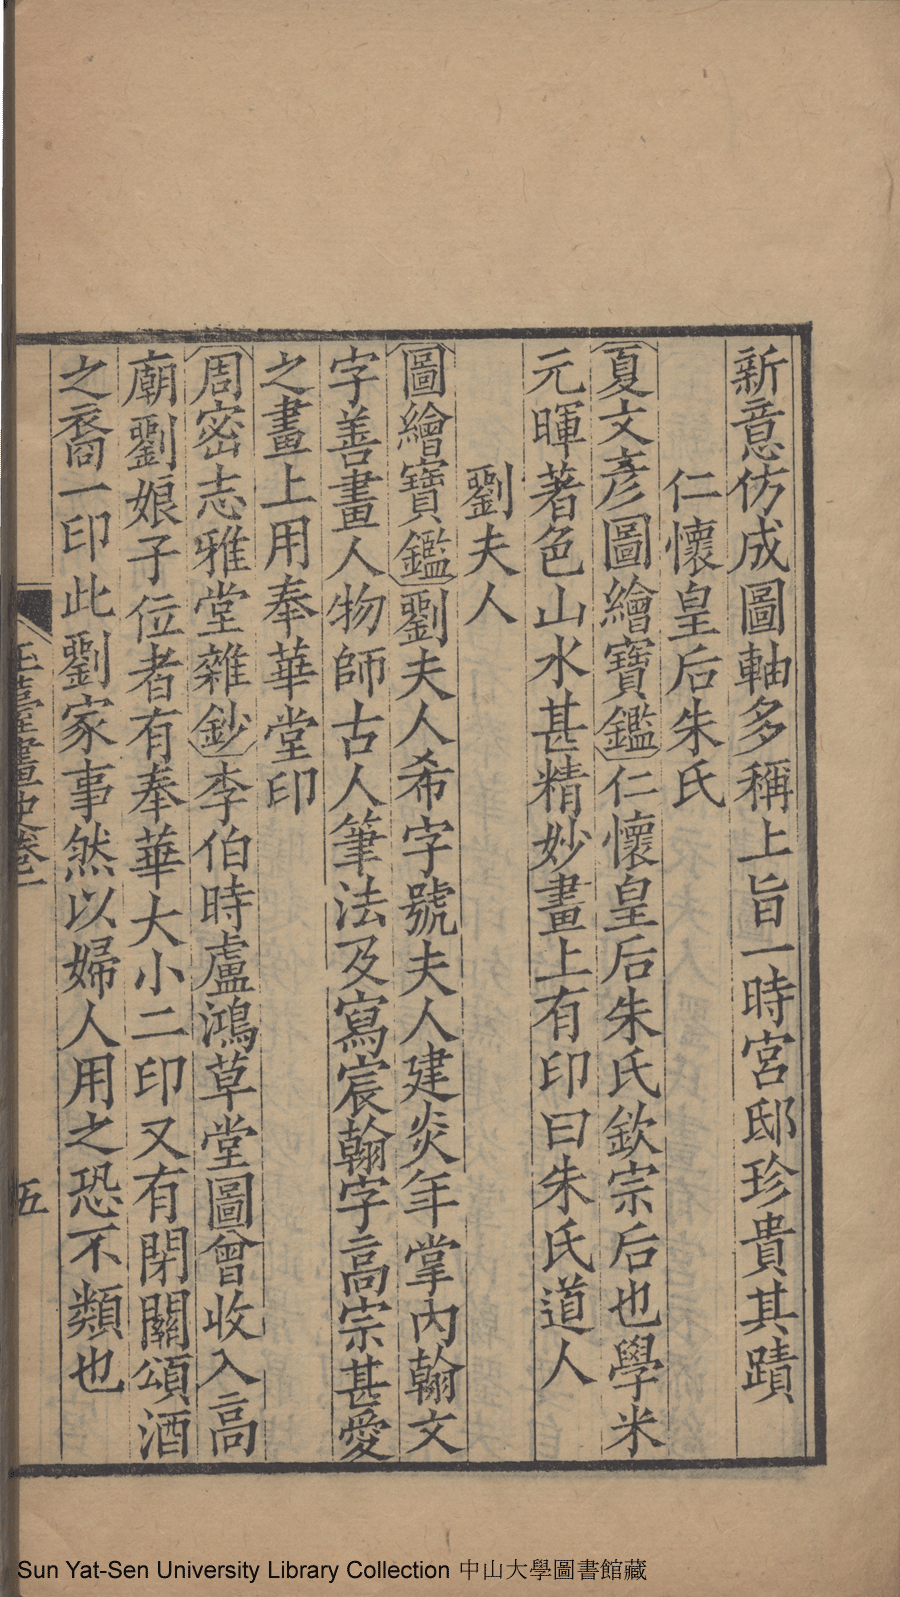 新意仿成圖軸多稱上旨一時宮邸珍貴其蹟
仁懷皇后朱氏
夏文彥圖繪寶鑑仁懷皇后朱氏欽宗后也學米
元暉著色山水甚精妙畫上有印曰朱氏道人
劉夫人
圖繪寶鑑劉夫人希字號夫人建炎年掌內翰文
字善畫人物師古人筆法及寫宸翰字高宗甚愛
之畫上用奉華堂印
周密志雅堂雜鈔李伯時盧鴻草堂圖曾收入高
廟劉娘子位者有奉華大小二印又有閉關頌酒
之裔一印此劉家事然以婦人用之恐不類也
玉臺畫史卷一
五
Sun Yat-Sen University Library Collection 中山大學圖書館藏